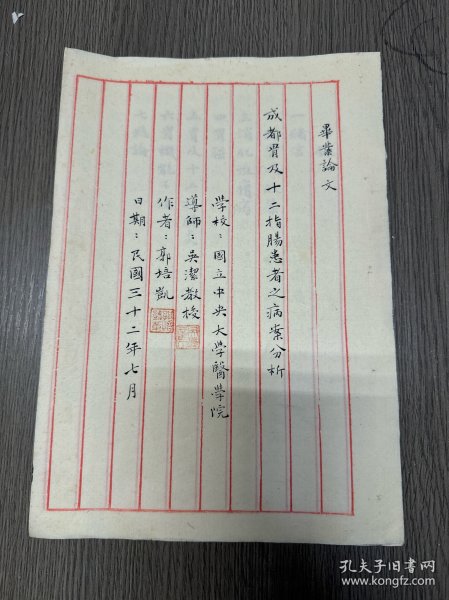 畢業論文
成都胃及十二指腸患者之病案分析
學校：國立中央大學醫學院
導師：吳潔教授
作者：郭培凱
日期：民國三十二年七月
孔夫子旧书网
www.kongfz.com